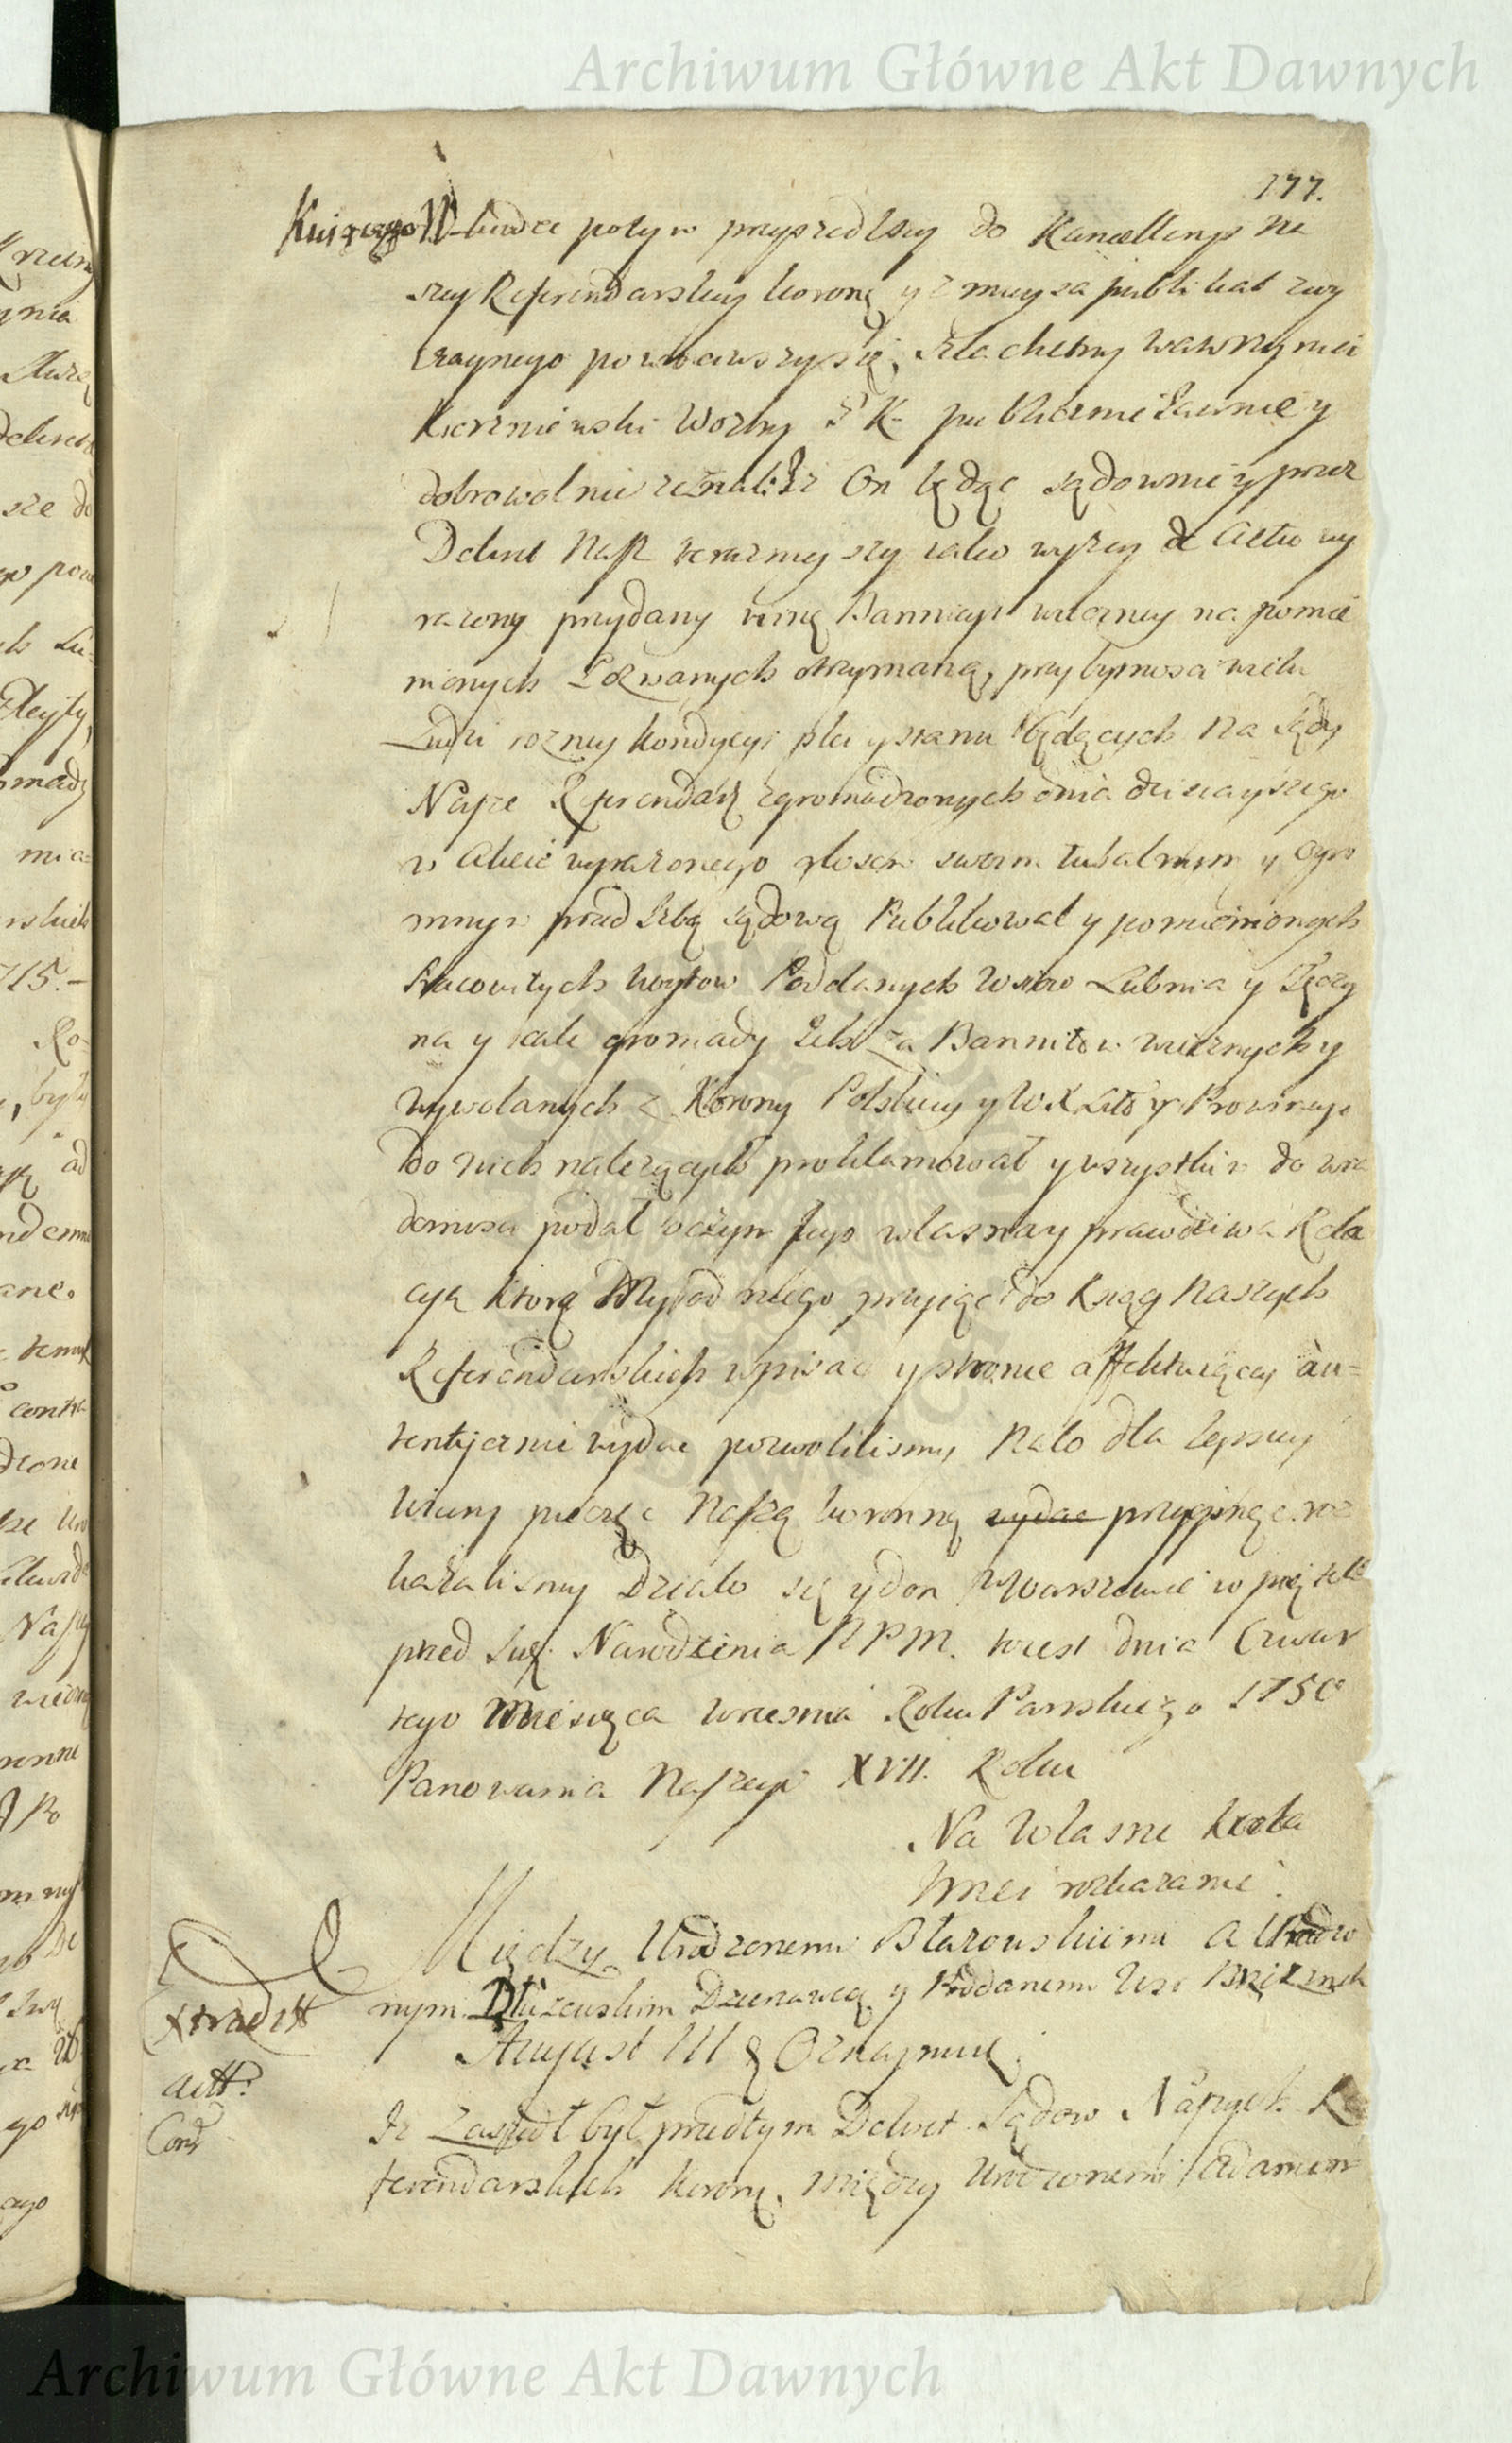 Archiwum Główne Akt Dawnych
177.
potym przyszedłszy do Kancellaryi Na
szey Referendarskiey koronę y z mieysca publikat zwy
czaynego powrociwszy się, Szlachetny Wawrzyniec
Wozny J K publicznie Jawnie y
dobrowolnie zeznał: Iż On będąc sądownie y przez
Dekret Nasz terazmieyszy iako wyzey de Actu wy
razony przydany winę Bannicyi wieczney na pomie
nionych Pozwanych otrzymaną, przy bytnosci wielu
Ludzi rozney kondycyi płci y stanu będących Na Sądy
Nasze Referendarz zgromadzonych dnia dzisieyszego
w Akcie wyrazonego głosem swoim tubalnym y ogro
mnym przed Izbą sądową Publikował y pomienionych
Pracowitych Woytow Poddanych Wsiow Lubnia y Tęczy
na y całe gromady Ich za Bannitow wiecznych y
wywołanych z Korony Polskiey y W X Litt y Prowincyi
do nich należących proklamował y wszystkim do wia
domosci podał o czym Jego własna y prawdziwa Rela
cya Którą My od niego przyjąć do Ksiąg Naszych
Referendarskich wpisać y stronie affektuiącey au=
tentycznie wydac pozwolilismy Na to dla lepszey
Wiary pieczęć Naszą koronną wydac przycisnąc roz
kazalismy Działo się y dan w Warszawie w piątek
przed Swę. Narodzenia NPM. to iest dnia Czwar
tego Miesięca Wrzesnia Roku Panskiego 1750
Panowania Naszego XVII. Roku
Na Własne Krola
Jmci rozkazanie.
Między Urodzonemi Błazowskiemi A Urodzo
nym Dłuzewskim Dzierzawcą y Poddanemi Wsi
Extradit
August III & Oznaymuię
autt:
Cons
Iz Zaszedł był przedtym Dekret Sądow Naszych Re
ferendarskich Koronę. między Urodzonemi Adamem
Archiwum Główne Akt Dawnych